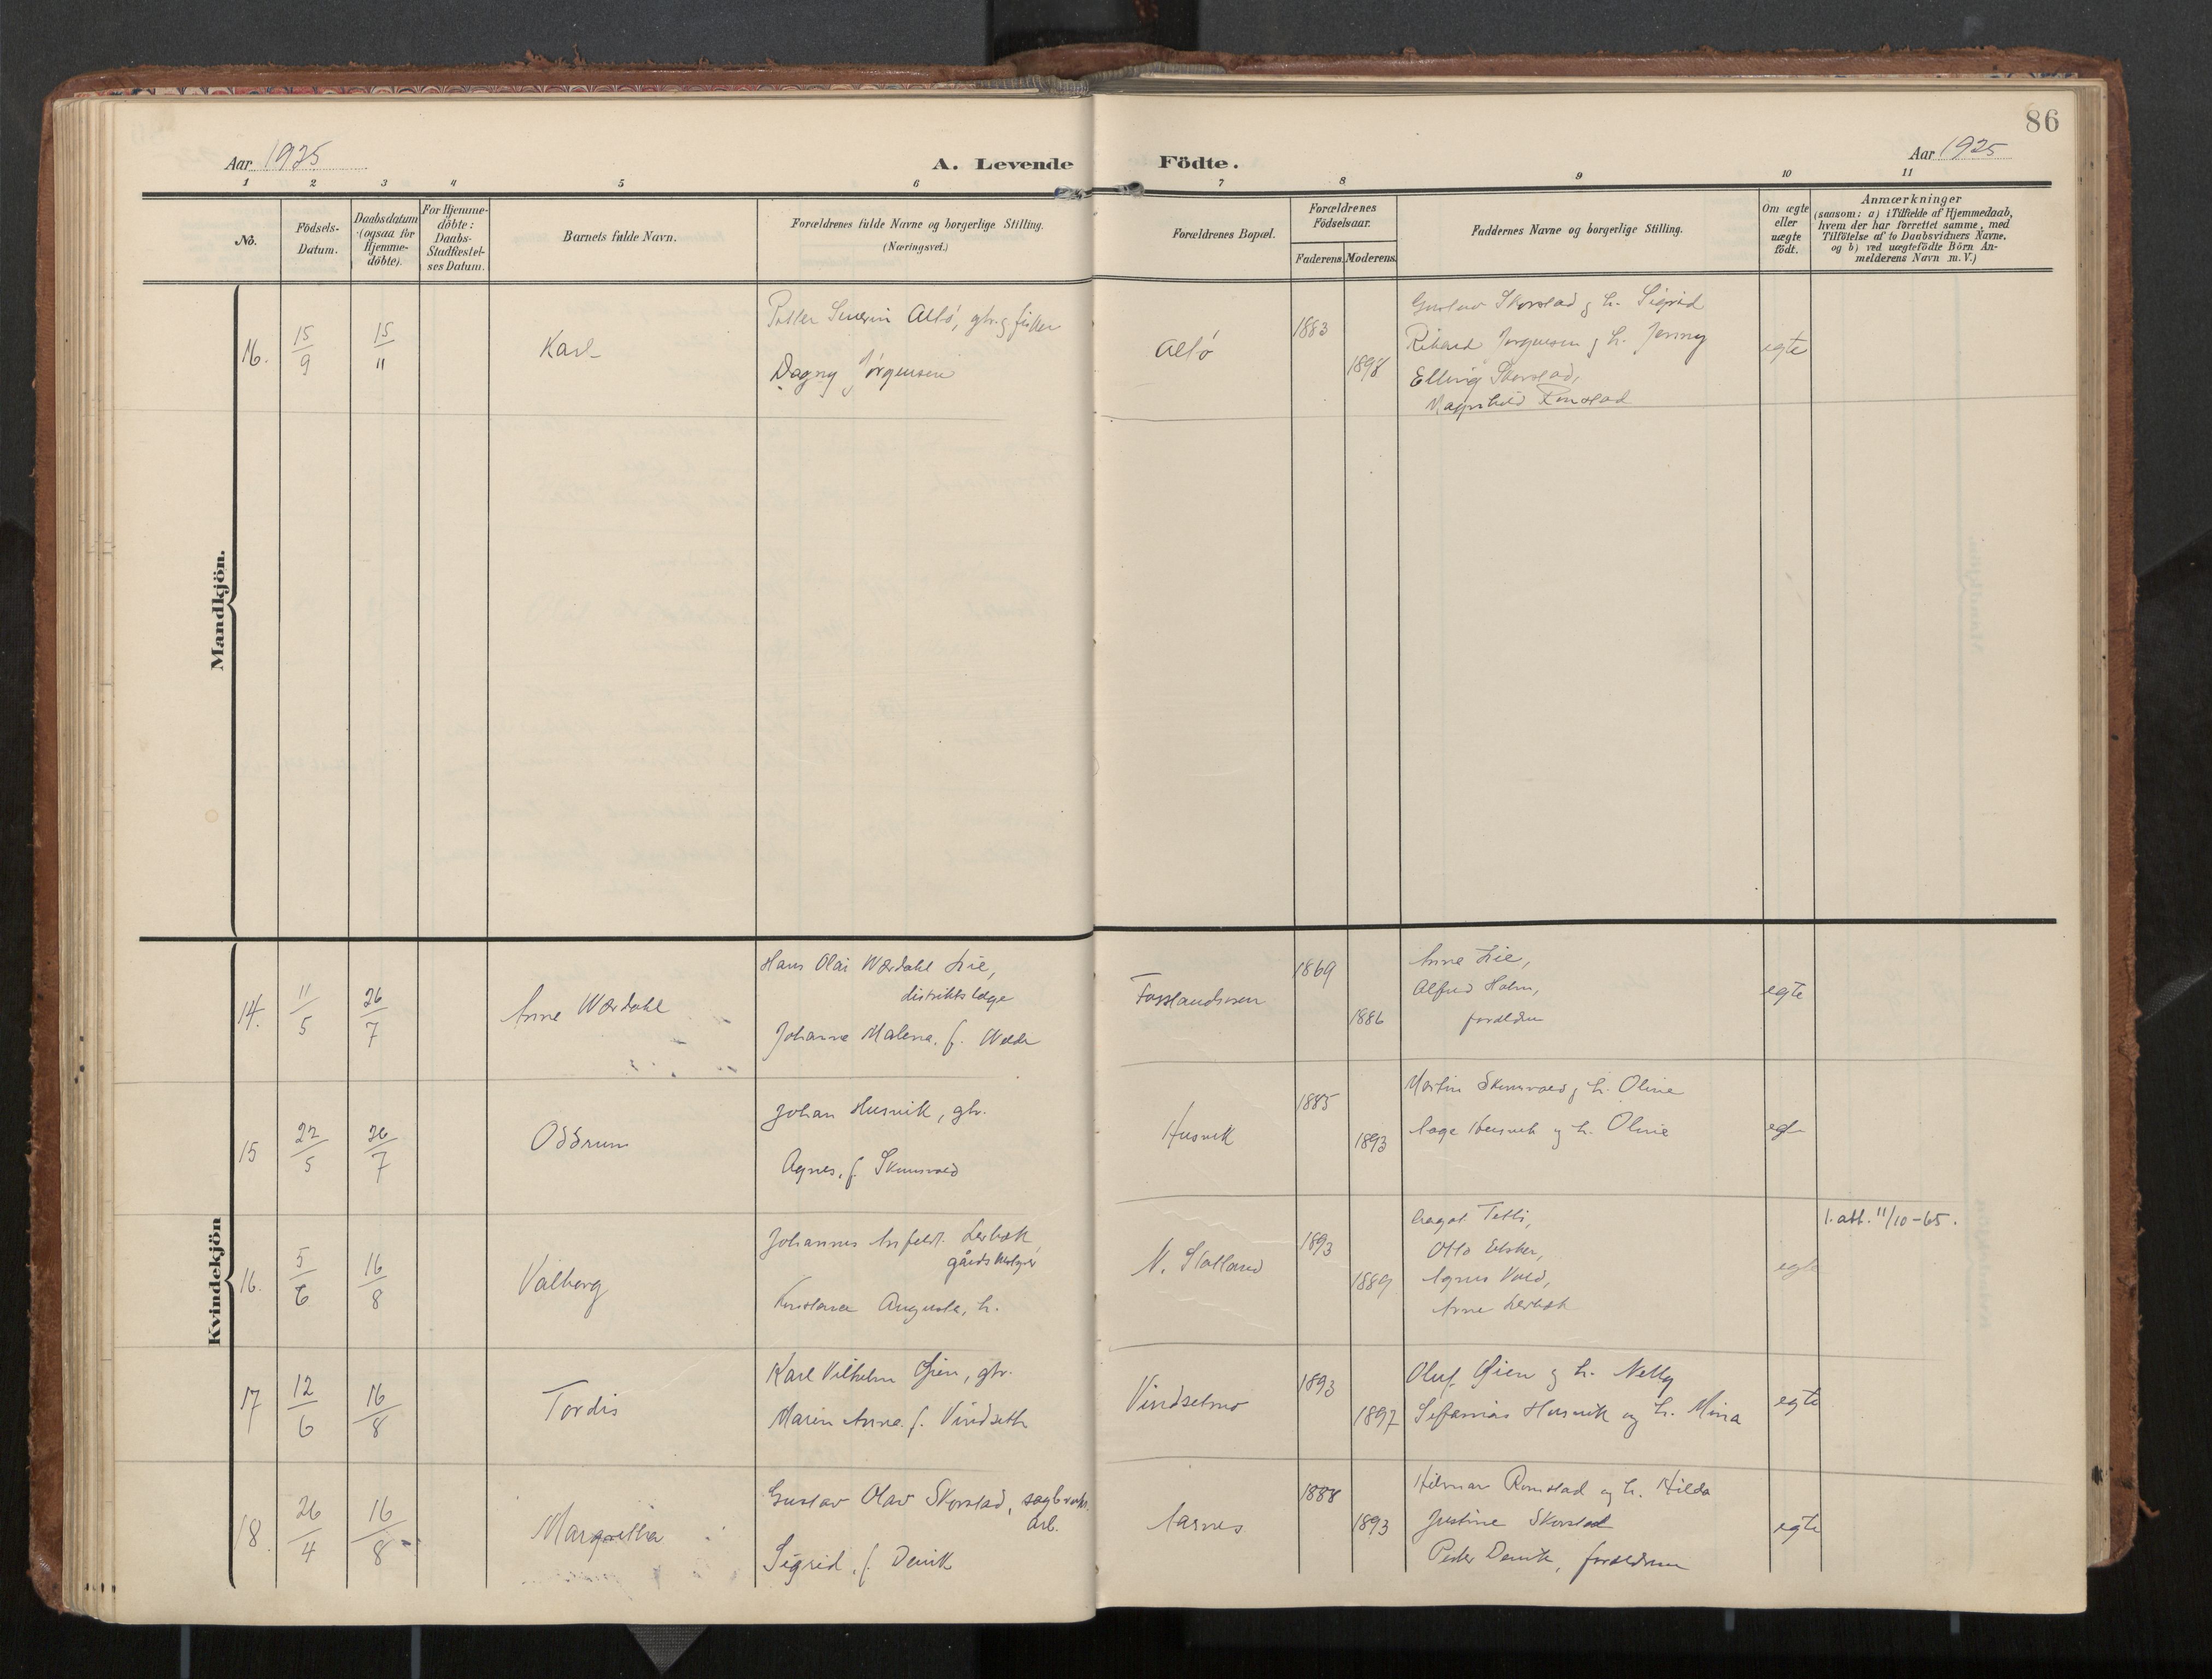 86
Aar 1925
A. Levende Födte.
Aar 1925
1 2 3 4 5 6 7 8 9 10 11
No.
Födsels-
Datum.
Daabsdatum
(ogsaa for
Hjemme-
döbte).
For Hjemme-
döbte:
Daabs-
Stadfæstel-
ses Datum.
Barnets fulde Navn.
Forældrenes fulde Navne og borgerlige Stilling.
(Næringsvei.)
Forældrenes Bopæl.
Forældrenes
Födselsaar.
Faderens. Moderens.
Faddernes Navne og borgerlige Stilling.
Om ægte
eller
uægte
födt.
Anmærkninger
(saasom: a) i Tilfælde af Hjemmedaab,
hvem der har forrettet samme, med
Tilföielse af to Daabsvidners Navne.
og b) ved uægtefödte Börn An-
melderens Navn m. V.)
Mandkjön.
16. 15/9 15/11 Karl
Severin Altø, gbr. g. fisker
Dagny Jørgensen
Altø
1883
1898
Gustav Skorstad g h. Sigrid
Rikard Jørgensen g h. Jenny
Elling Skorstad,
Magnhild
egte
Kvindekjön
14. 11/5 26/7 Anne Wærdahl
Hans Olai Wærdahl Lie,
distriktslæge
Johanna Malena, f.
1869
1886
Anne Lie,
Alfred Holm,
foreldre
egte
15 22/5 26/7 Oddrun
Johan Husvik, gbr.
Agnes, f.
Husvik
1885
1893
Martin g h. Oline
Aage Husvik g h. Oline
egte
16. 5/6 16/8 Valborg
Johannes Lerbæk,
gårdsbestyrer
Augusta, h.
N.
1893
1889
Otto
Agnes
Anne Lerbæk
egte
1. att. 11/10-65.
17 12/6 16/8 Tordis
Karl Vilhelm Øien, gbr.
Maren Anna f. Vindseth
Vindsetmo
1893
1897
Oluf Øien g h. Nelly
Sefanias Husvik og h. Mina
egte
18. 26/4 16/8 Margretha
Gustav Olav Skorstad, sagbruks.
arb.
Sigrid, f. Dervik
Aarnes
1888
1893
Hilmar Romstad og h. Hilda
Justine Skorstad
Peder Dervik, foreldrene
egte